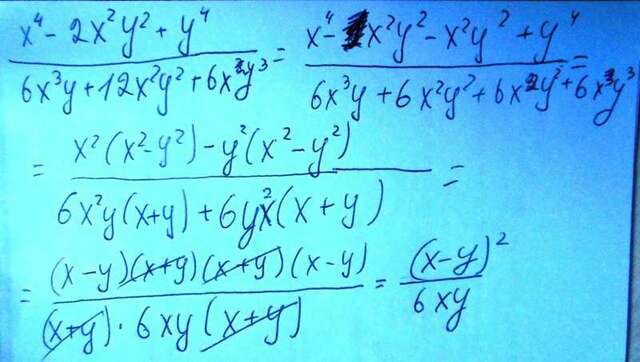 x⁴ - 2x²y² + y⁴ / 6x³y + 12x²y² + 6xy³ = x⁴ - x²y² - x²y² + y⁴ / 6x³y + 6x²y² + 6x²y² + 6xy³ =
= x²(x² - y²) - y²(x² - y²) / 6x²y(x+y) + 6y²x(x+y) =
= (x-y)(x+y)(x+y)(x-y) / (x+y) · 6xy(x+y) = (x-y)² / 6xy